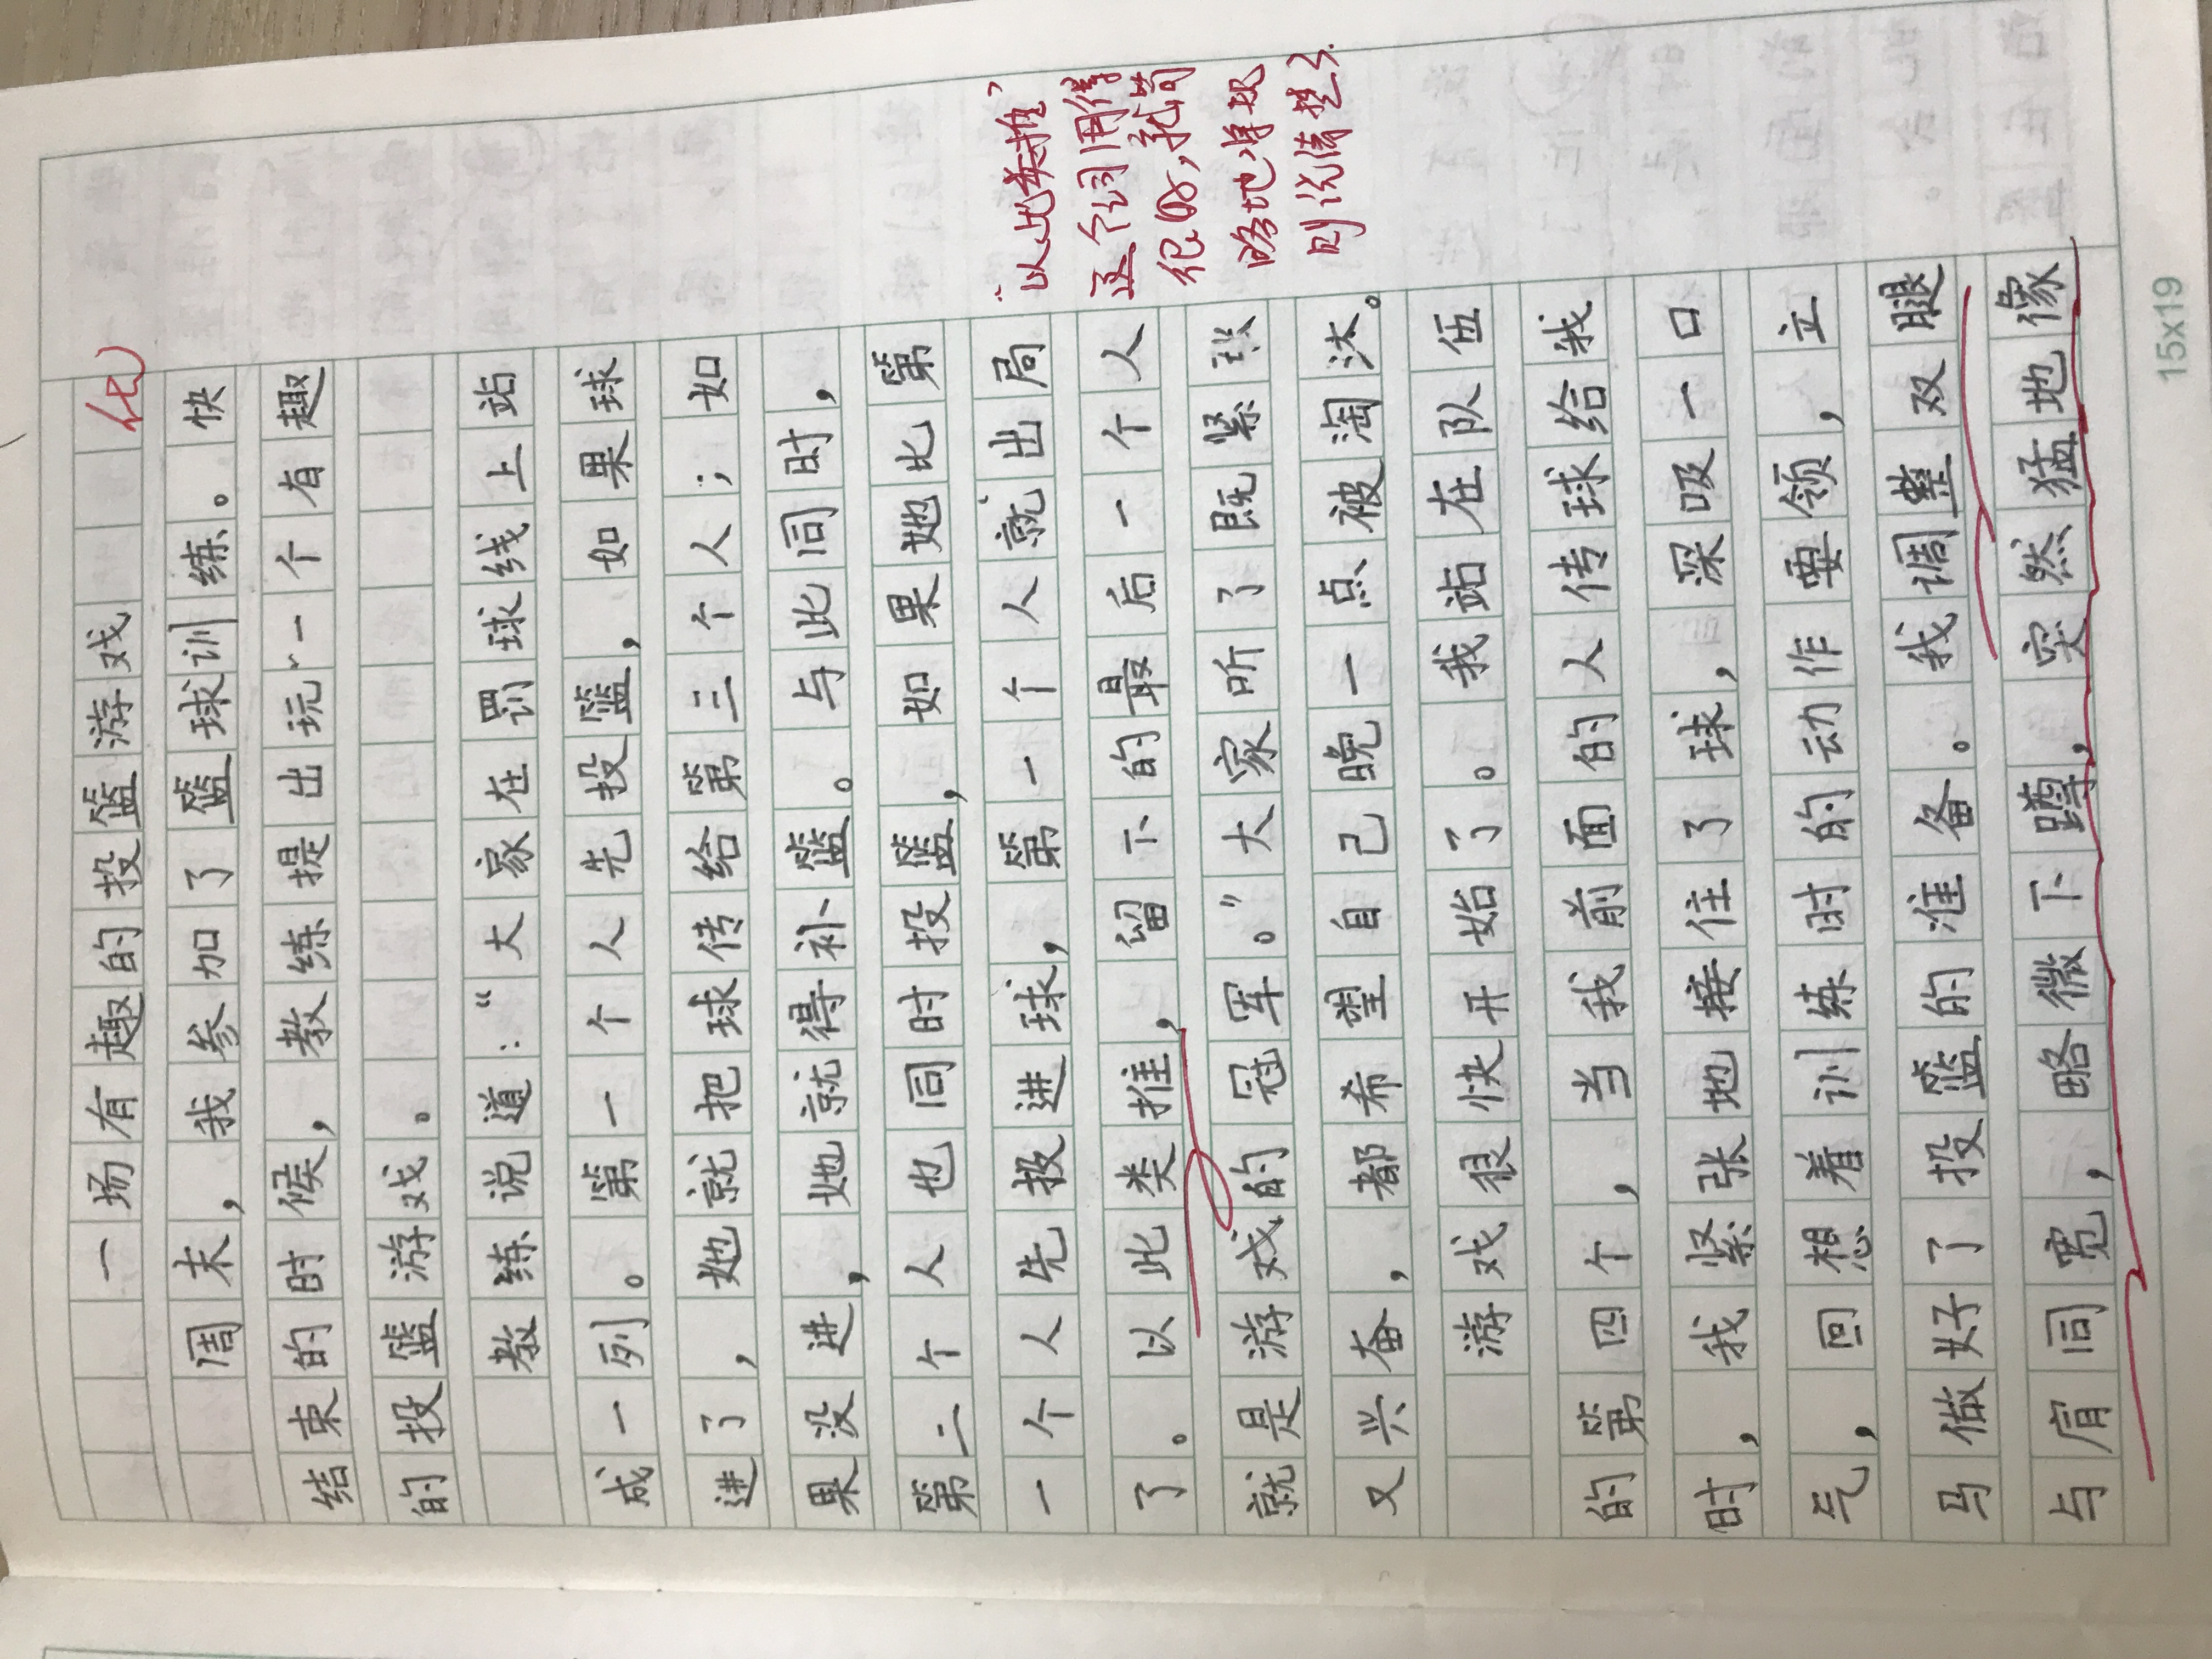 一场有趣的投篮游戏 优
周末，我参加了篮球训练。快
结束的时候，教练提出玩一个有趣
的投篮游戏。
教练说道：“大家在罚球线上站
成一列。第一个人先投篮，如果球
进了，她就把球传给第三个人；如
果没进，她就得补篮。与此同时，
第二个人也同时投篮，如果她比第
一个人先投进球，第一个人就出局
了。以此类推，留下的最后一个人
就是游戏的冠军。”大家听了既紧张
又兴奋，都希望自己晚一点被淘汰。
游戏很快开始了。我站在队伍
的第四个，当我前面的人传球给我
时，我紧张地接住了球，深吸一口
气，回想着训练时的动作要领，立
马做好了投篮的准备。我调整双腿
与肩同宽，略微下蹲，突然猛地像
“以此类推”
这个词用得
很好，就简
略地将规
则说清楚了.
15x19